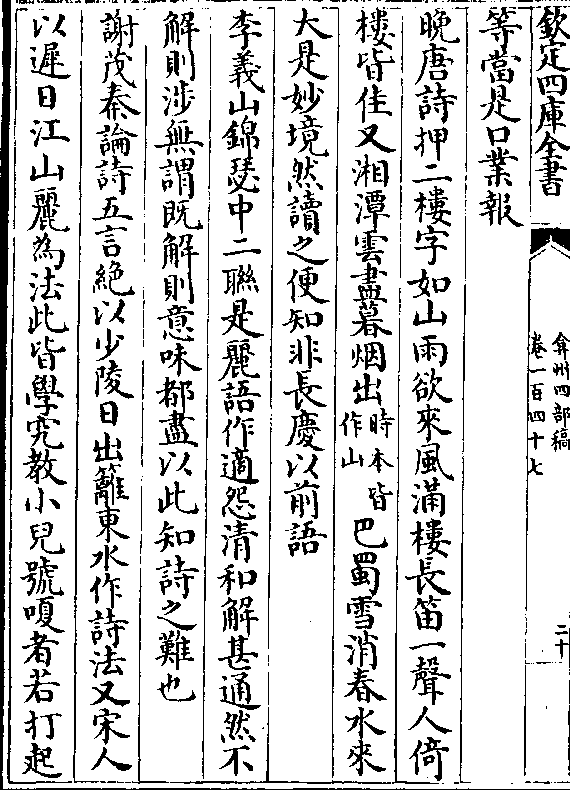 欽定四庫全書
弇州四部稿
卷一百四十七
二十
等當是口業報
晚唐詩押二樓字如山雨欲來風滿樓長笛一聲人倚
樓皆佳又湘潭雲盡暮烟出時本皆作山巴蜀雪消春水來
大是妙境然讀之便知非長慶以前語
李義山錦瑟中二聯是麗語作適怨清和解甚通然不
解則涉無謂既解則意味都盡以此知詩之難也
謝茂秦論詩五言絶以少陵日出籬東水作詩法又宋人
以遲日江山麗為法此皆學究教小兒號嗄者若打起